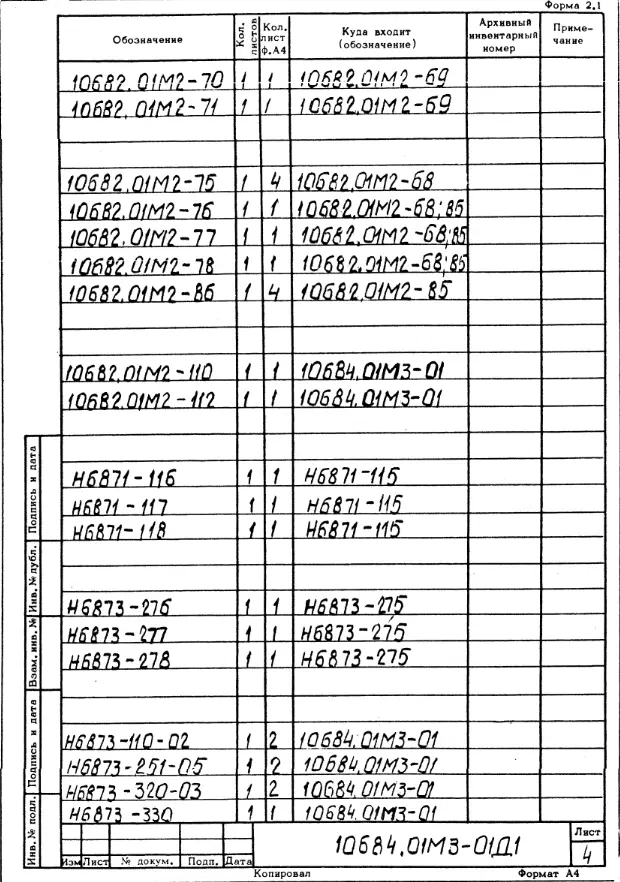 Форма 2.1
Обозначение Кол. листов Кол. лист ф.А4 Куда входит (обозначение) Архивный инвентарный номер Приме-чание
10682.01М2-70 1 1 10682.01М2-69
10682.01М2-71 1 1 10682.01М2-69
10682.01М2-75 1 4 10682.01М2-68
10682.01М2-76 1 1 10682.01М2-68;85
10682.01М2-77 1 1 10682.01М2-68;85
10682.01М2-78 1 1 10682.01М2-68;85
10682.01М2-86 1 4 10682.01М2-85
10682.01М2-110 1 1 10684.01М3-01
10682.01М2-112 1 1 10684.01М3-01
Н6871-116 1 1 Н6871-115
Н6871-117 1 1 Н6871-115
Н6871-118 1 1 Н6871-115
Н6873-276 1 1 Н6873-275
Н6873-277 1 1 Н6873-275
Н6873-278 1 1 Н6873-275
Н6873-110-02 1 2 10684.01М3-01
Н6873-251-05 1 2 10684.01М3-01
Н6873-320-03 1 2 10684.01М3-01
Н6873-330 1 1 10684.01М3-01
Подпись и дата
Инв. № дубл.
Взам. инв. №
Подпись и дата
Инв. № подл.
Изм Лист № докум. Подп. Дата
10684.01М3-01Д1
Лист
4
Копировал Формат А4